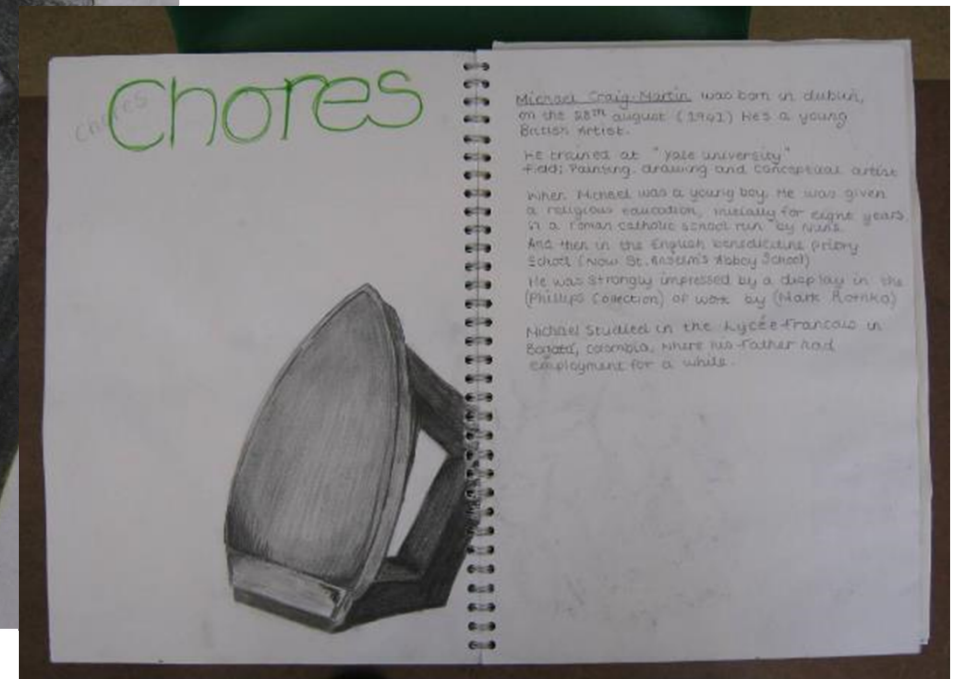 Chores
chores
Michael Craig-Martin was born in dublin,
on the 28th august (1941) He's a young
British Artist.
He trained at "Yale university"
field; Painting. drawing and conceptual artist
When Michael was a young boy. He was given
a religious education, initially for eight years
in a roman catholic school run by nuns.
And then in the English benedictine priory
School (Now St. Anselm's Abbey School)
He was strongly impressed by a display in the
(Phillips Collection) of work by (Mark Rothko)
Michael Studied in the Lycée Francais in
Bogotá, Colombia, where his father had
employment for a while.